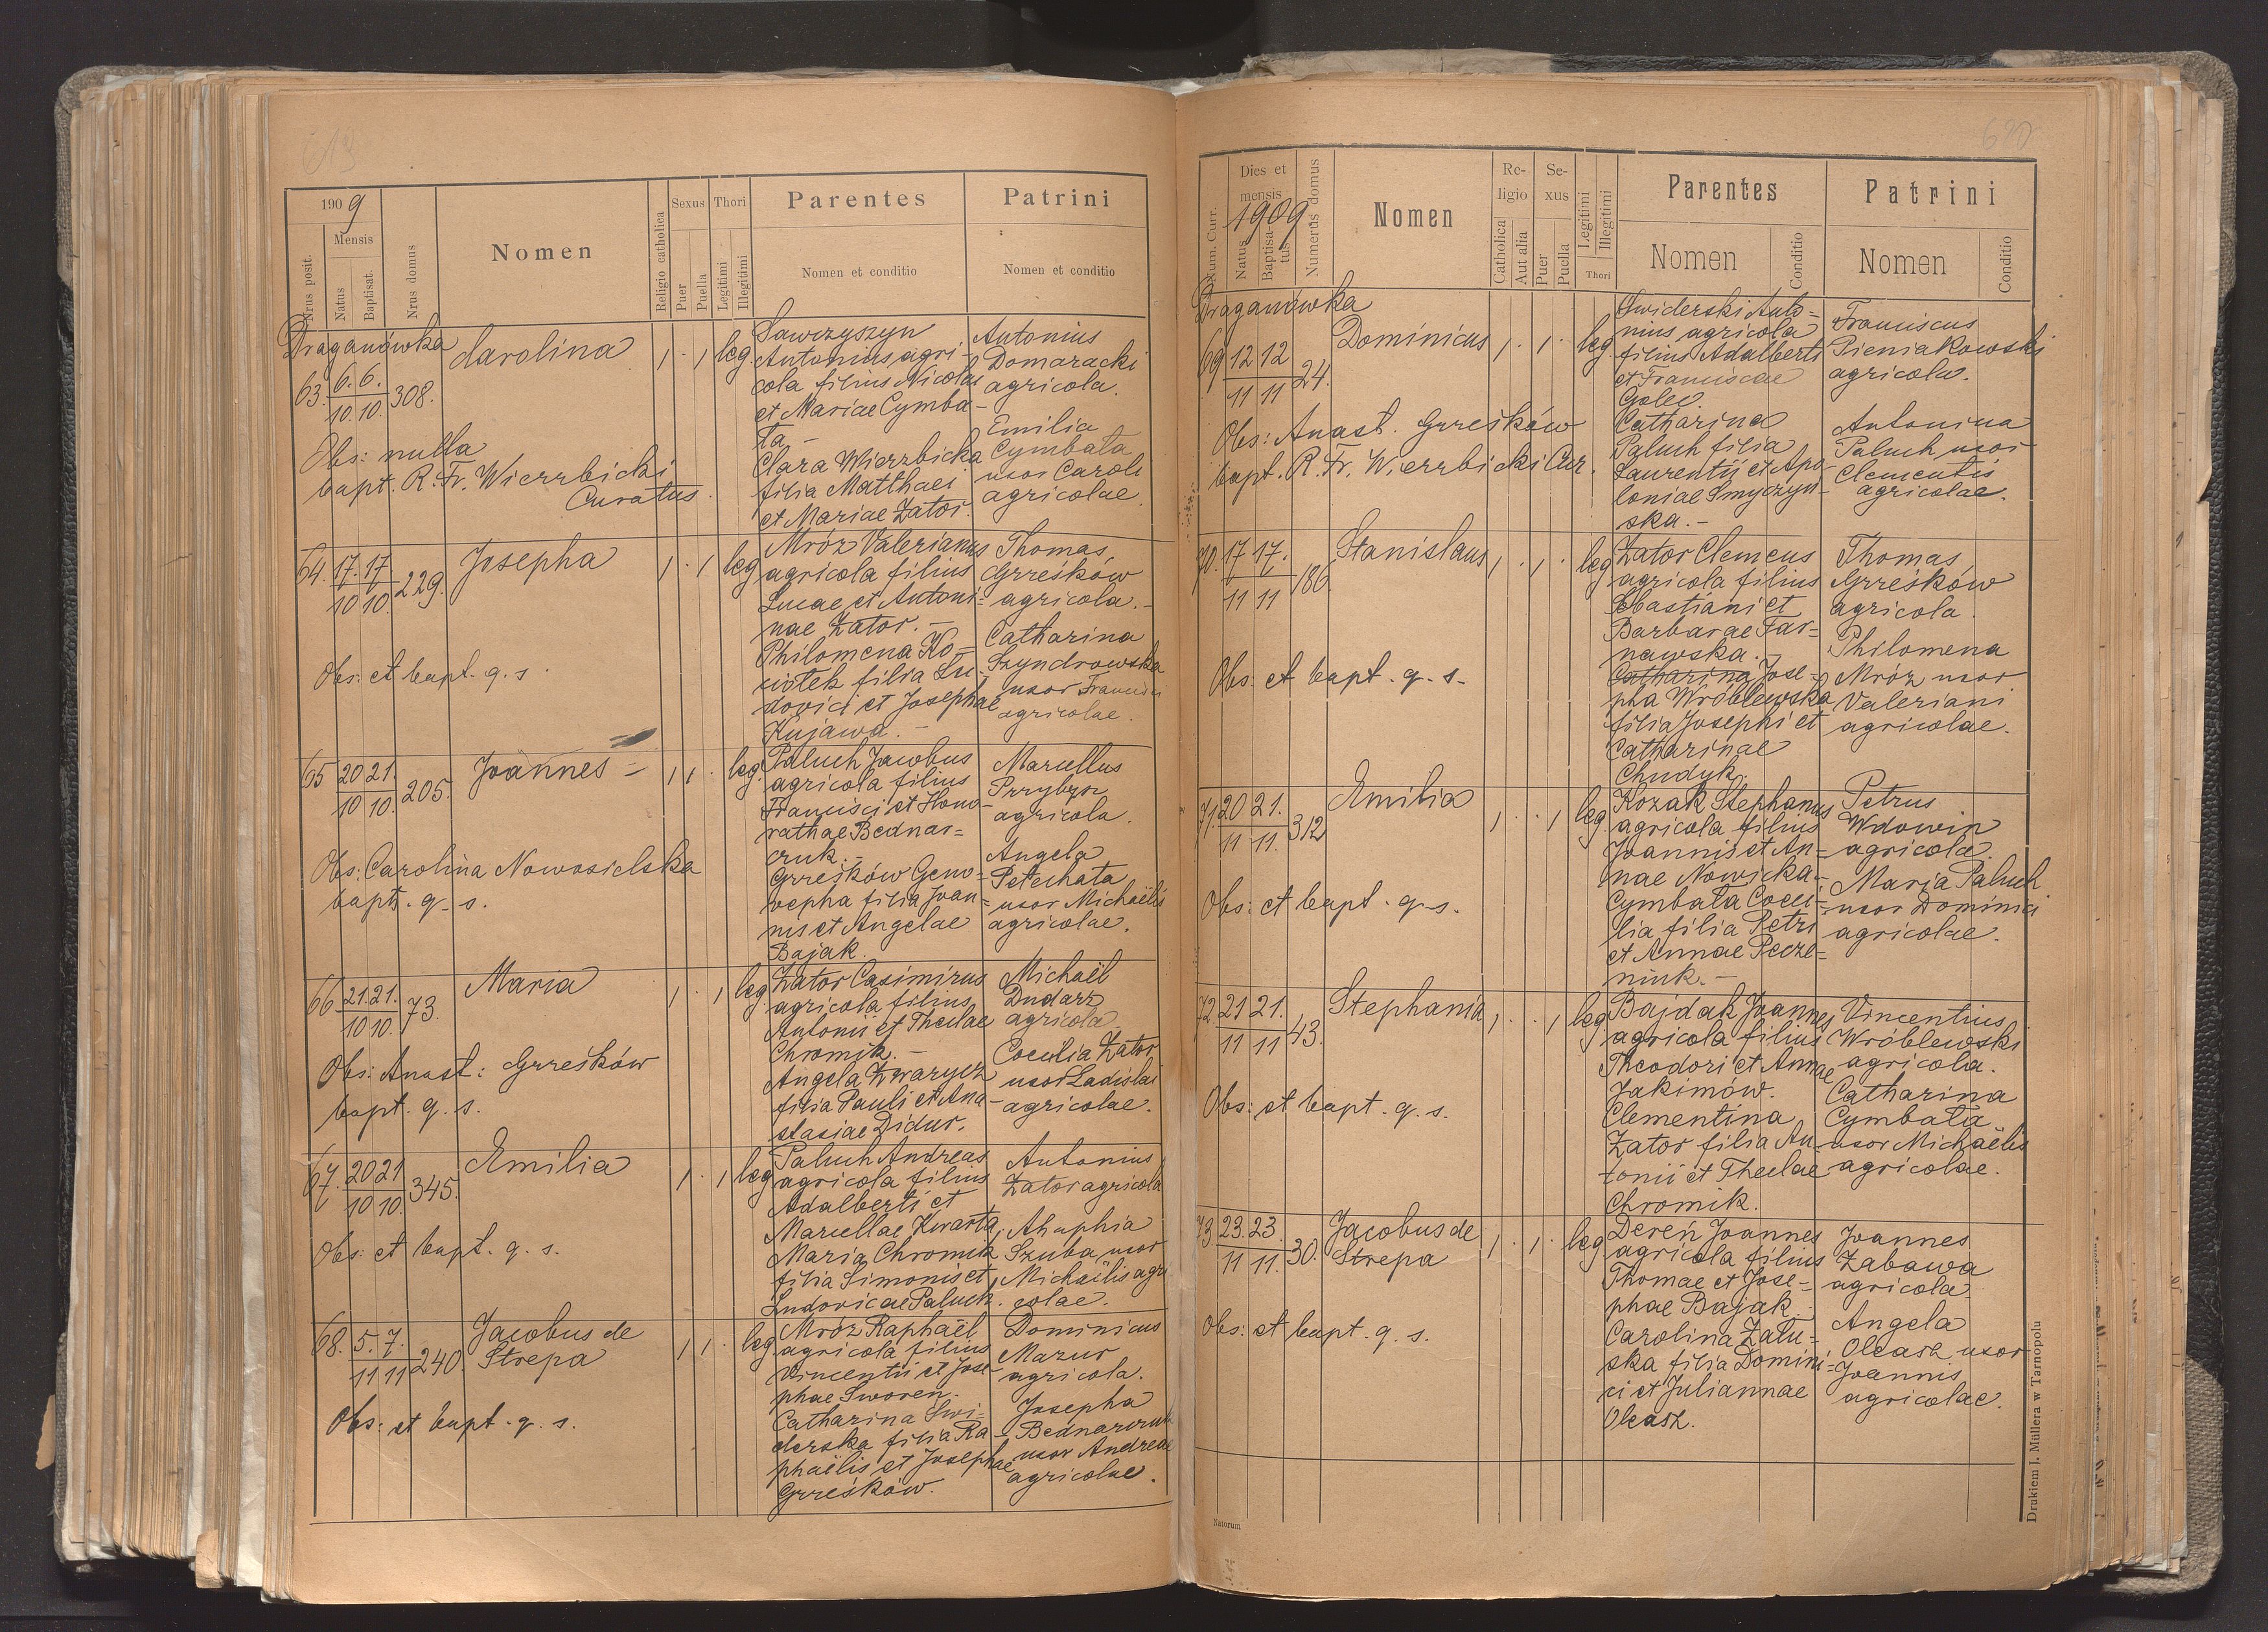 619
1909
Mensis
Nrus posit.
Natus
Baptisat.
Nrus domus
Nomen
Religio catholica
Sexus
Puer
Puella
Thori
Legitimi
Illegitimi
Parentes
Nomen et conditio
Patrini
Nomen et conditio
Draganówka
63. 6. 6. 308.
10. 10.
Carolina
1 . 1 leg.
Sawczyszyn
Antonius agri-
cola filius Nicolai
et Mariae Cymba-
ła -
Clara Wierzbicka
filia Matthaei
et Mariae Zator.
Antonius
Domaracki
agricola.
Emilia
Cymbała
uxor Caroli
agricolae.
Obs: nulla
bapt. R. Fr. Wierzbicki
Curatus.
64. 17. 17 229.
10 10.
Josepha
1 . 1 leg
Mróz Valerianus
agricola filius
Lucae et Antoni-
nae Zator. -
Philomena Ko-
ciołek filia Lu-
dovici et Josephae
Kujawa. -
Thomas
Grześków
agricola. -
Catharina
Szyndrowska
uxor Francisci
agricolae.
Obs: et bapt. q. s.
65 20 21. 205.
10 10.
Joannes -
1 1 . leg.
Paluch Jacobus
agricola filius
Francisci et Hono-
rathae Bednar-
czuk. -
Grześków Geno-
vepha filia Joan-
nis et Angelae
Bajak.
Marcellus
Przybysz
agricola.
Angela
Petechata
uxor Michaëlis
agricolae.
Obs: Carolina Nowosielska
bapt. q. s.
66 21. 21. 73.
10 10.
Maria
1 . 1 leg.
Zator Casimirus
agricola filius
Antonii et Theclae
Chromik. -
Angela Zwarycz
filia Pauli et Ana-
stasiae Didur.
Michaël
Dudarz
agricola
Coecilia Zator
uxor Ladislai
agricolae.
Obs: Anast: Grześków
bapt. q. s.
67. 20 21 345.
10 10.
Emilia
1 . 1 leg
Paluch Andreas
agricola filius
Adalberti et
Marcellae Kwarta,
Maria Chromik
filia Simonis et
Ludovicae Paluch.
Antonius
Zator agricola
Ahaphia
Szuba uxor
Michaëlis agri
colae.
Obs: et bapt. q. s.
68. 5. 7. 240.
11 11
Jacobus de
Strepa
1 1 . leg.
Mróz Raphaël
agricola filius
Vincentii et Jose-
phae Sworeń.
Catharina Swi-
derska filia Ra-
phaëlis et Josephae
Grześków.
Dominicus
Mazur
agricola.
Josepha
Bednarczuk
uxor Andreae
agricolae.
Obs: et bapt. q. s.
620
Num. Curr.
Dies et
mensis
1909
Natus
Baptisa-
tus
Numerus domus
Nomen
Re-
ligio
Catholica
Aut alia
Se-
xus
Puer
Puella
Legitimi
Illegitimi
Thori
Parentes
Nomen
Conditio
Patrini
Nomen
Conditio
Draganówka
69 12 12 24.
11 11
Dominicus
1 . 1 . leg.
Swiderski Anto-
nius agricola
filius Adalberti
et Franciscae
Golec.
Catharina
Paluch filia
Laurentii et Apo-
loniae Smyczyń-
ska. -
Franciscus
Pieniakowski
agricola.
Antonina
Paluch uxor
Clementis
agricolae.
Obs: Anast. Grześków
bapt. R. Fr. Wierzbicki Cur.
70. 17 17. 186.
11 11
Stanislaus
1 . 1 . leg
Zator Clemens
agricola filius
Sebastiani et
Barbarae Tar-
nawska. -
Catharina Jose-
pha Wróblewska
filia Josephi et
Catharinae
Chudyk.
Thomas
Grześków
agricola.
Philomena
Mróz uxor
Valeriani
agricolae.
Obs: et bapt. q. s.
71. 20 21. 312
11 11.
Emilia
1 . . 1 leg.
Kozak Stephanus
agricola filius
Joannis et An-
nae Nowicka-
Cymbała Coeci-
lia filia Petri
et Annae Pecze-
niuk. -
Petrus
Wdowin
agricola.
Maria Paluch
uxor Dominici
agricolae.
Obs: et bapt. q. s.
72. 21 21. 43.
11 11
Stephania
1 . . 1 leg
Bajdak Joannes
agricola filius
Theodori et Annae
Jakimów.
Clementina
Zator filia An-
tonii et Theclae
Chromik.
Vincentius
Wróblewski
agricola.
Catharina
Cymbała
uxor Michaëlis
agricolae.
Obs: et bapt. q. s.
73 23. 23. 30.
11 11
Jacobus de
Strepa
1 . 1 . leg
Dereń Joannes
agricola filius
Thomae et Jose-
phae Bajak.
Carolina Zału-
ska filia Domini-
ci et Juliannae
Oleasz.
Joannes
Zabawa
agricola.
Angela
Oleasz uxor
Joannis
agricolae.
Obs: et bapt. q. s.
Natorum
Drukiem J. Müllera w Tarnopolu